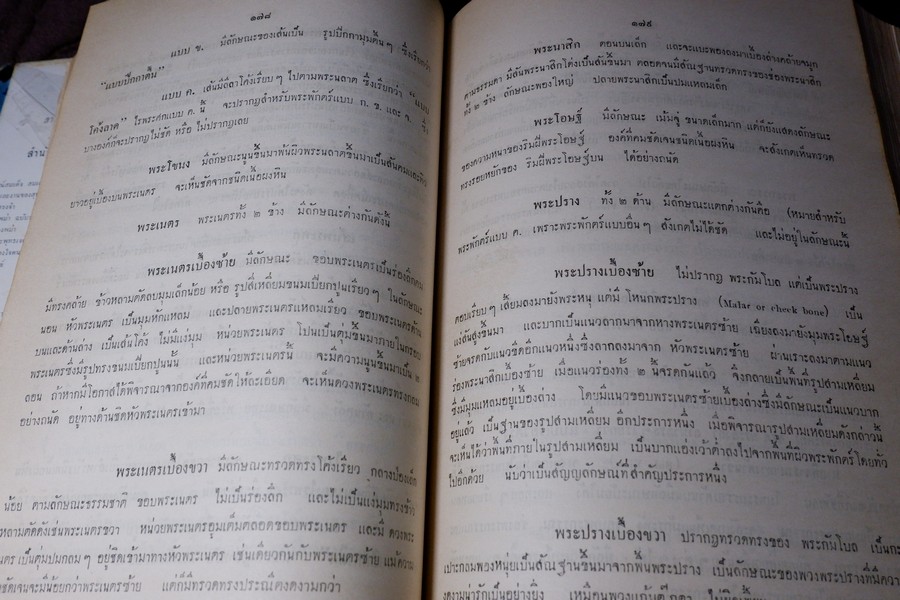 ๑๗๘
แบบ ข. มีลักษณะของเส้นเป็น รูปปีกกามุมตื้นๆ ซึ่งเรียกว่า
"แบบปีกกาตื้น"
แบบ ค. เส้นมีลีลาโค้งเรียบๆ ไปตามพระนลาฏ ซึ่งเรียกว่า "แบบ
โค้งลาด" ไรพระศกแบบ ค. นี้ จะปรากฏสำหรับพระพักตร์แบบ ก. ข. และ จ. ซึ่ง
บางองค์ก็จะปรากฏไม่ชัด หรือ ไม่ปรากฏเลย
พระโขนง มีลักษณะนูนขึ้นมาพ้นผิวพระนลาฏขึ้นมาเป็นสันคมและทิว
ยาวอยู่เบื้องบนพระเนตร จะเห็นชัดจากชนิดเนื้อผงหิน
พระเนตร พระเนตรทั้ง ๒ ข้าง มีลักษณะต่างกันดังนี้
พระเนตรเบื้องซ้าย มีลักษณะ ขอบพระเนตรเป็นร่องลึกคม
มีทรงคล้าย ข้าวหลามตัดลบมุมเล็กน้อย หรือ รูปสี่เหลี่ยมขนมเปียกปูนเรียวๆ ในลักษณะ
นอน หัวพระเนตร เป็นมุมหักแหลม และปลายพระเนตรแหลมเรียว ขอบพระเนตรด้าน
บนและด้านล่าง เป็นเส้นโค้ง ไม่มีแง่มุม หน่วยพระเนตร โปนเป็นตุ่มขึ้นมาภายในกรอบ
พระเนตรซึ่งมีรูปทรงขนมเปียกปูนนั้น และหน่วยพระเนตรนี้ จะมีความนูนขึ้นมาเป็น ๒
ตอน ถ้าหากมีโอกาสได้พิจารณาจากองค์ที่คมชัดให้ละเอียด จะเห็นดวงพระเนตรทรงกลม
อย่างถนัด อยู่ทางด้านชิดหัวพระเนตรเข้ามา
พระเนตรเบื้องขวา มีลักษณะทรวดทรงโค้งเรียว กลางป่องเล็ก
น้อย ตามลักษณะธรรมชาติ ขอบพระเนตร ไม่เป็นร่องลึก และไม่เป็นแง่มุมทรงข้าว
หลามตัดดังเช่นพระเนตรขวา หน่วยพระเนตรอูมเต็มตลอดขอบพระเนตร และมี ดวงพระ
เนตร เป็นตุ่มปมกลมๆ อยู่ชิดเข้ามาทางหัวพระเนตร เช่นเดียวกันกับพระเนตรซ้าย แม้ความ
ชัดเจนจะมีน้อยกว่าพระเนตรซ้าย แต่ก็มีทรวดทรงประณีตงดงามกว่า
๑๗๙
พระนาสิก ตอนบนเล็ก และจะแบะพองลงมาเบื้องล่างคล้ายจมูก
ตามธรรมดา มีสันพระนาสิกโด่งเป็นสันขึ้นมา ตลอดจนมีสัณฐานทรวดทรงของช่องพระนาสิก
ทั้ง ๒ ข้าง ลักษณะพองใหญ่ ปลายพระนาสิกเป็นปมแหลมเล็ก
พระโอษฐ์ มีลักษณะ เม้มจู๋ ขนาดเล็กมาก แต่ก็ยังแสดงลักษณะ
ของความหนาของริมฝีพระโอษฐ์ องค์ที่คมชัดเจนชนิดเนื้อผงหิน จะสังเกตเห็นทรวด
ทรงรอยหยักของ ริมฝีพระโอษฐ์บน ได้อย่างถนัด
พระปราง ทั้ง ๒ ด้าน มีลักษณะแตกต่างกันคือ (หมายสำหรับ
พระพักตร์แบบ ค. เพราะพระพักตร์แบบอื่นๆ สังเกตไม่ได้ชัด และไม่อยู่ในลักษณะนี้
พระปรางเบื้องซ้าย ไม่ปรากฏ พระกัมโบล แต่เป็นพระปราง
ตอบเรียบๆ เสี้ยมลงมายังพระหนุ แต่มี โหนกพระปราง (Malar or cheek bone) เป็น
แง่สันสูงขึ้นมา และบากเป็นแนวถากมาจากหางพระเนตรซ้าย เฉียงลงมายังมุมพระโอษฐ์
ซ้ายจรดกับแนวขีดอีกแนวหนึ่งซึ่งถากลงมาจาก หัวพระเนตรซ้าย ผ่านเราะลงมาตามแนว
ร่องพระนาสิกเบื้องซ้าย เมื่อแนวร่องทั้ง ๒ นี้จรดกันแล้ว จึงกลายเป็นพื้นที่รูปสามเหลี่ยม
ซึ่งมีมุมแหลมอยู่เบื้องล่าง โดยมีแนวขอบพระเนตรซ้ายเบื้องล่างซึ่งมีลักษณะเป็นแนวบาก
อยู่แล้ว เป็นฐานของรูปสามเหลี่ยม อีกประการหนึ่ง เมื่อพิจารณารูปสามเหลี่ยมดังกล่าวนี้
จะเห็นได้ว่าพื้นที่ภายในรูปสามเหลี่ยม เป็นบากแอ่งเว้าต่ำลงไปจากพื้นที่ผิวพระพักตร์โดยทั่ว
ไปอีกด้วย นับว่าเป็นสัญญลักษณ์ที่สำคัญประการหนึ่ง
พระปรางเบื้องขวา ปรากฏทรวดทรงของ พระกัมโบล เป็นกะ
เปาะกลมพองหนุ่ยเป็นสัณฐานขึ้นมาจากพื้นพระปราง เป็นลักษณะของพวงพระปรางที่มีความ
งดงามน่ารักเป็นอย่างยิ่ง เหมือนพวงแก้มตุ๊กตา